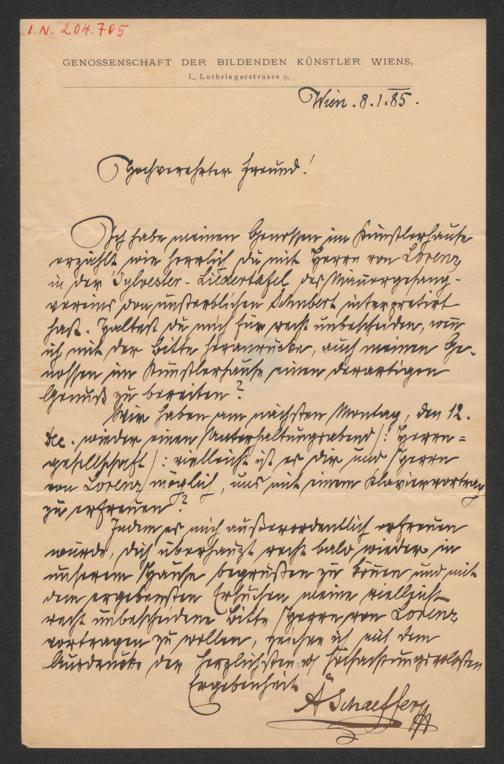 I.N. 204.705
GENOSSENSCHAFT DER BILDENDEN KÜNSTLER WIENS,
I., Lothringerstrasse 9.
Wien. 8.1.85.
Hochverehrter Freund!
Ich habe meinen Genossen im Künstlerhause
erzählt wie herrlich du mit Herrn von Lorenz
in der Sylvester-Liedertafel des Männergesang-
vereins den unsterblichen Schubert interpretirt
hast. Haltest du mich für recht unbescheiden, wenn
ich mit der Bitte heranrücke, auch meinen Ge-
nossen im Künstlerhause einen derartigen
Genuß zu bereiten?
Wir haben am nächsten Montag, den 12.
wieder einen Unterhaltungsabend /: Herrn=
gesellschaft /: vielleicht ist es dir und Herrn
von Lorenz möglich, uns mit einem Klaviervortrag
zu erfreuen?
Indem es mich außerordentlich erfreuen
würde, dich überhaupt recht bald wieder in
unserem Hause begrüßen zu können und mit
dem ergebensten Ersuchen meine vielleicht
recht unbescheidene Bitte Herrn von Lorenz
vortragen zu wollen, zeichne ich mit dem
Ausdrucke der herzlichsten hochachtungsvollsten
Ergebenheit
A Schaeffer